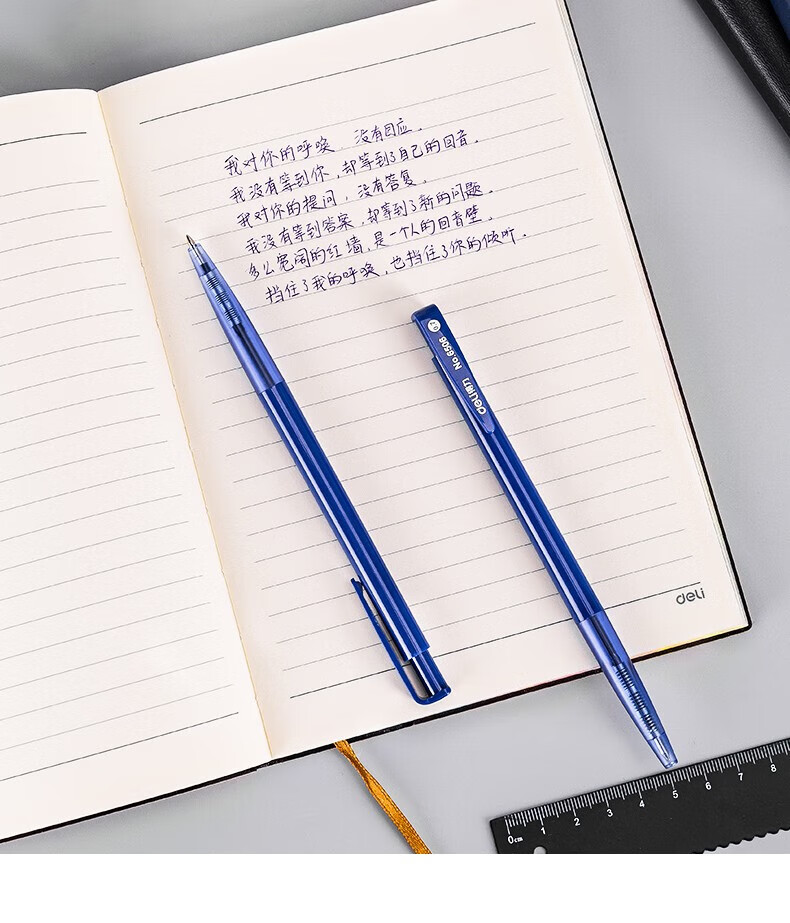 我对你的呼唤，没有回应。
我没有等到你，却等到了自己的回音。
我对你的提问，没有答复。
我没有等到答案，却等到了新的问题。
多么宽阔的红墙，是一个人的回音壁。
挡住了我的呼唤，也挡住了你的倾听。
No.6506
deli得力
deli
0cm 1 2 3 4 5 6 7 8